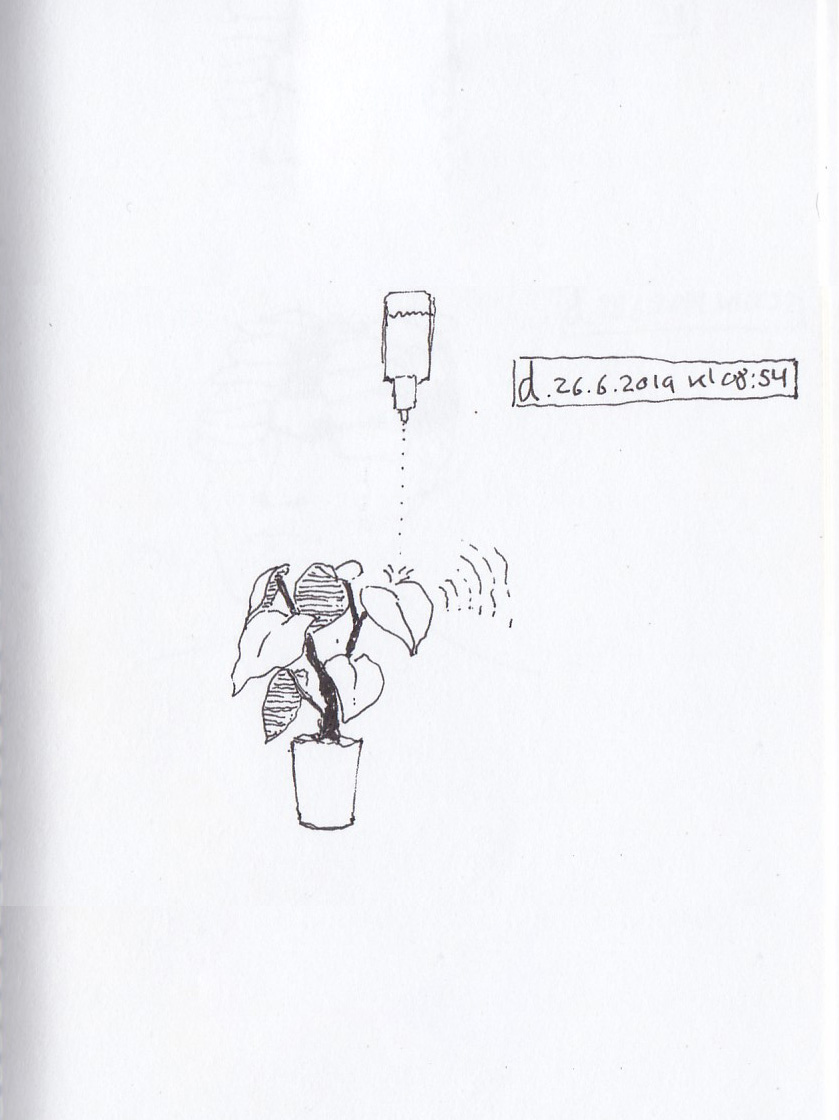 d.26.6.2019 kl 08:54